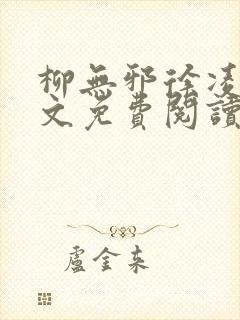 柳無邪徐凌
文免費閱讀
盧金來